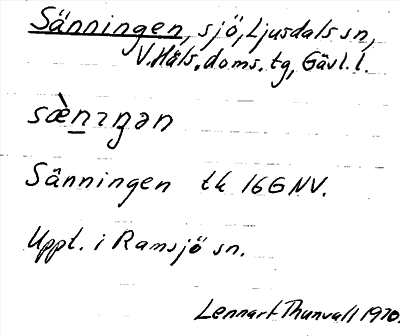 Sänningen, sjö, Ljusdals sn,
V. Häls. doms. tg, Gävl. l.
sæ̀nıŋən
Sänningen tk 16G NV.
Uppt. i Ramsjö sn.
Lennart Thunvall 1970.